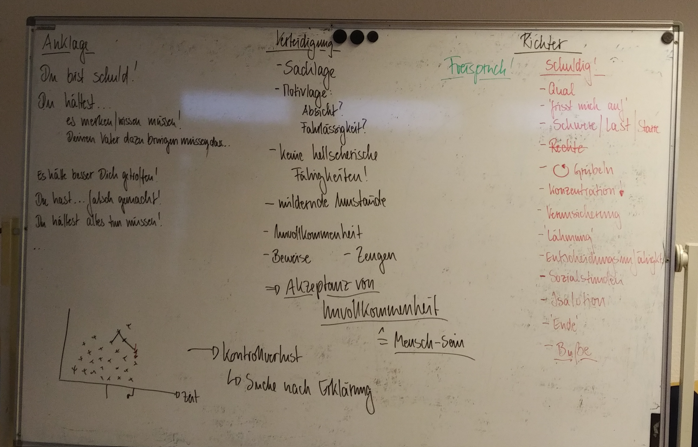 Anklage
Du bist schuld!
Du hättest...
es merken/wissen müssen!
Deinen Vater dazu bringen müssen, das...
Es hätte besser Dich getroffen!
Du hast... falsch gemacht!
Du hättest alles tun müssen!
..
Zeit
Verteidigung
- Sachlage
- Motivlage:
Absicht?
Fahrlässigkeit?
- keine hellseherische
Fähigkeiten!
- mildernde Umstände
- Unvollkommenheit
- Beweise - Zeugen
⇒ Akzeptanz von
Unvollkommenheit
≙ Mensch-Sein
→ Kontrollverlust
↳ Suche nach Erklärung
Freispruch!
Richter
Schuldig!
- Qual
- 'frisst mich auf'
- 'Schwere/Last/Starre
- Rechte
- Grübeln
- Konzentration
- Verunsicherung
- 'Lähmung'
- Sozialstunden
- Isolation
- 'Ende'
- Buße